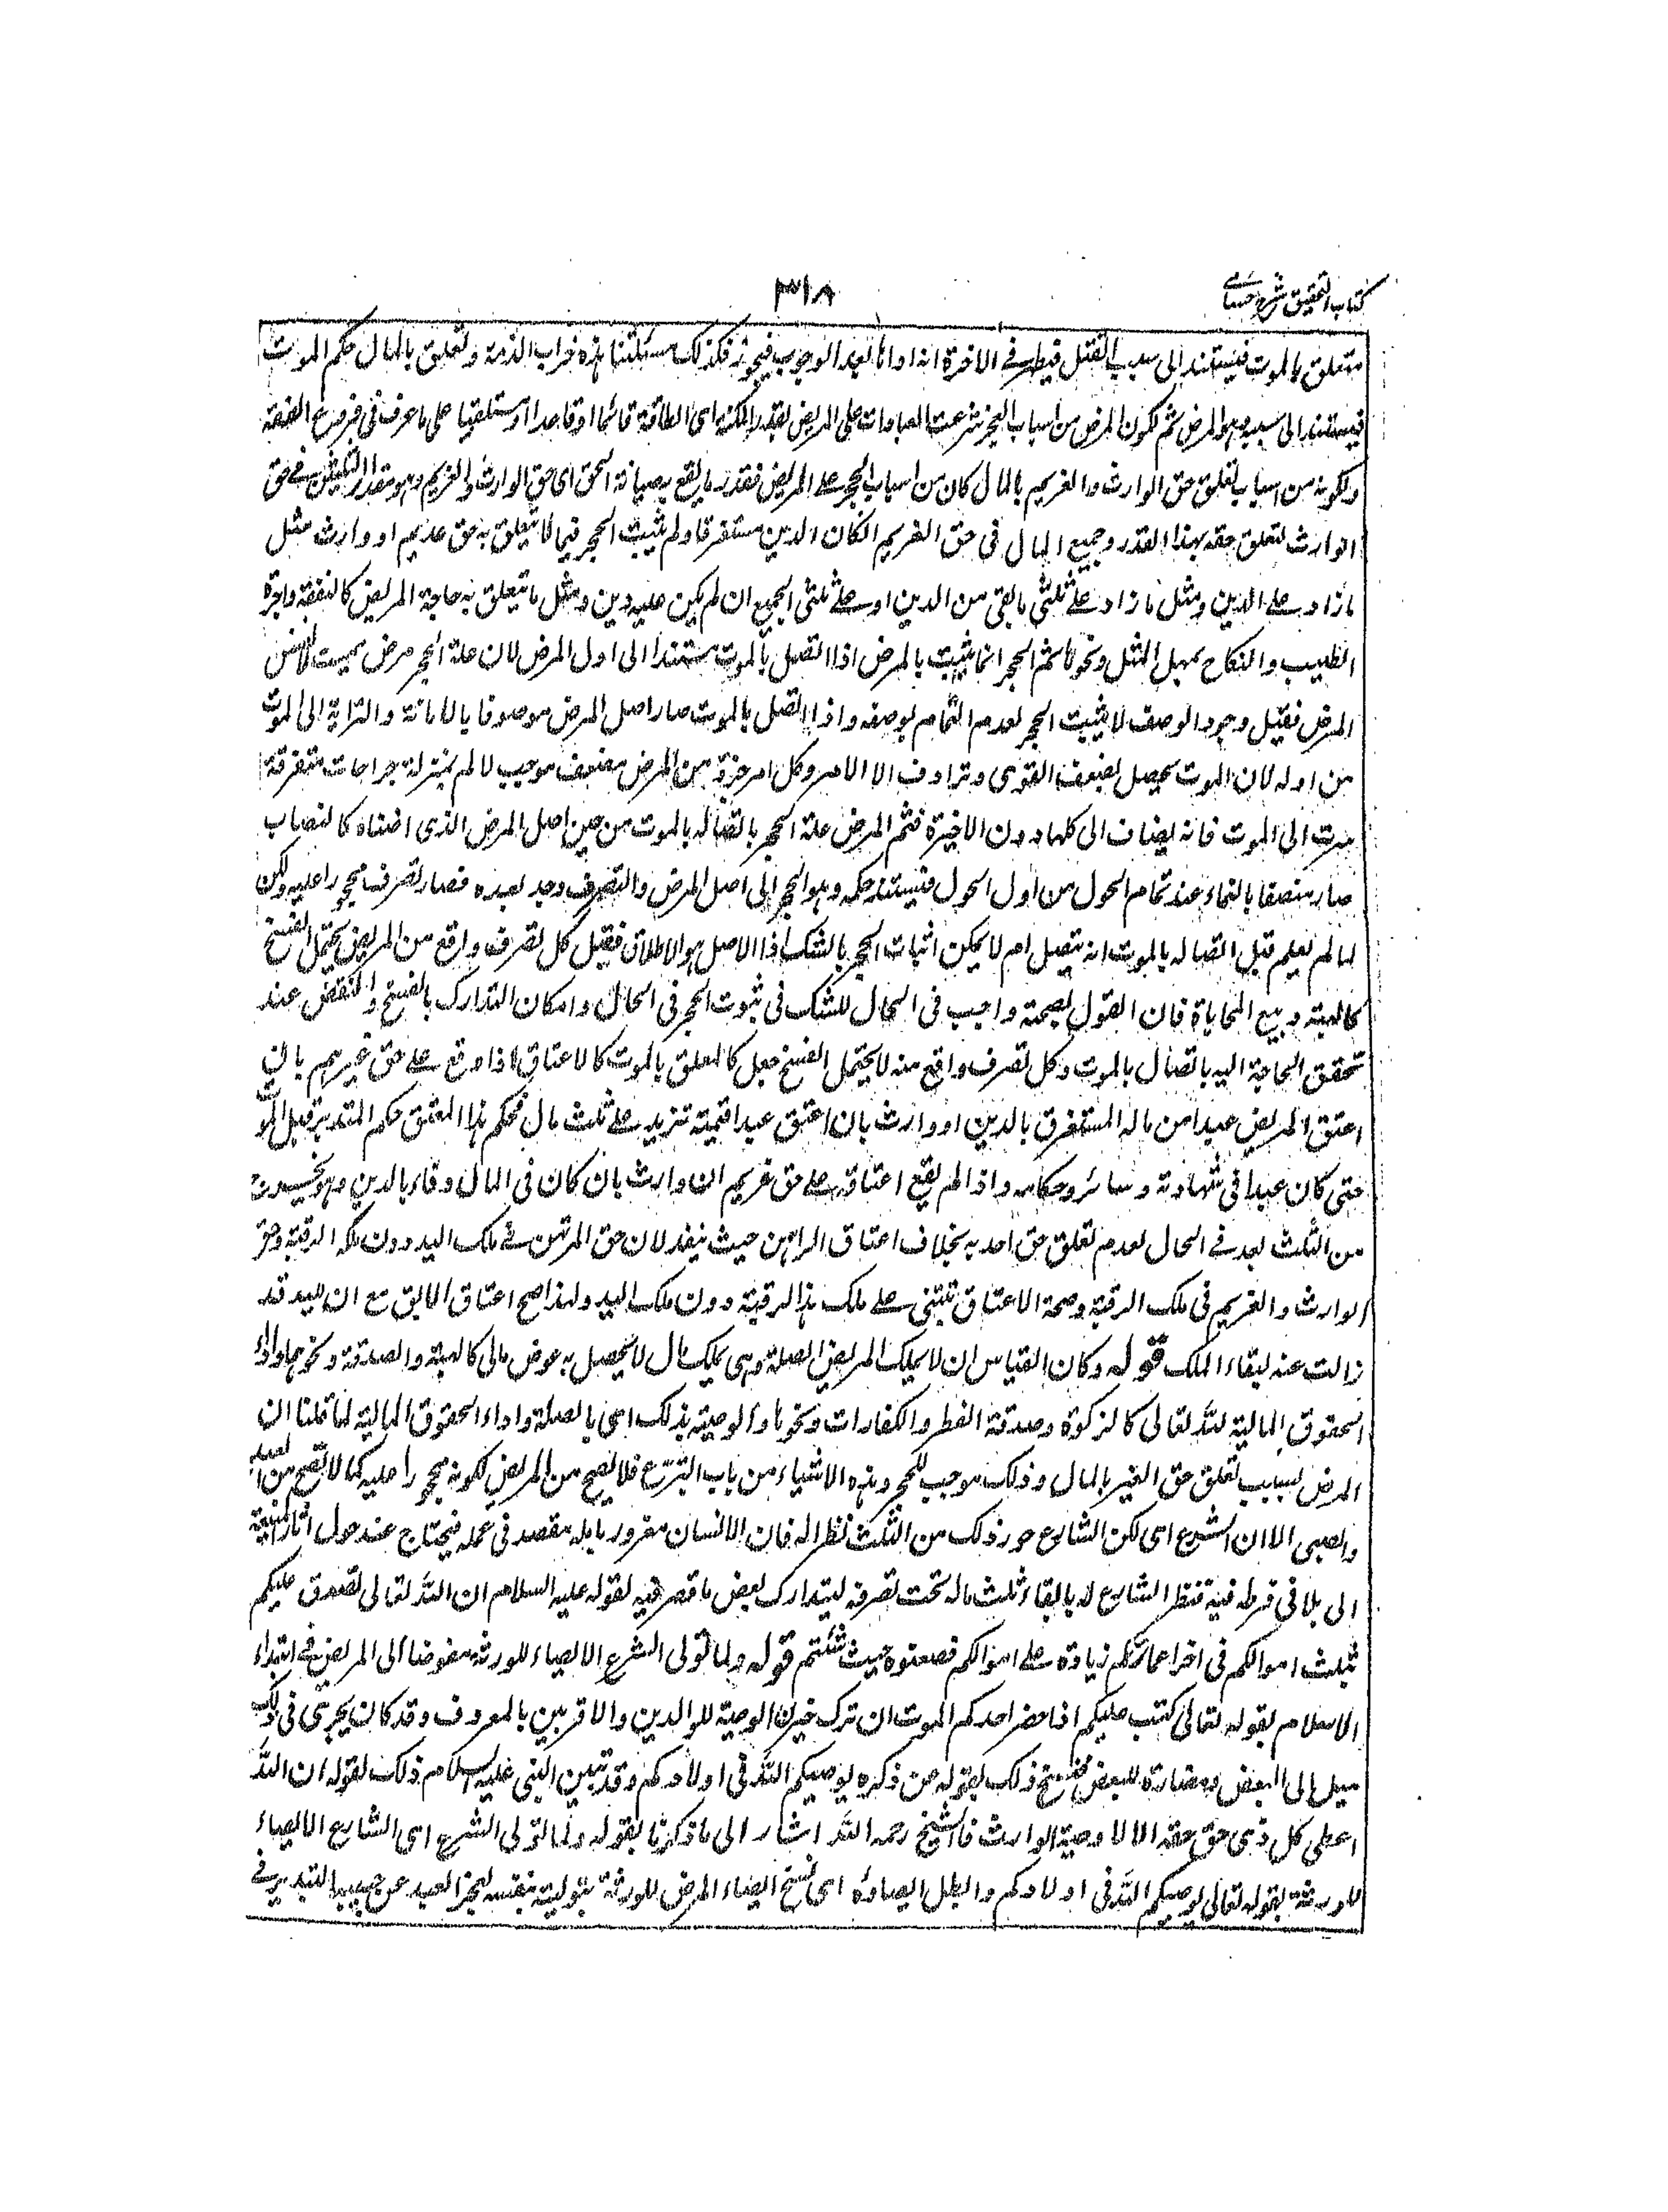 كتاب التحقيق شرح حسامى
٣١٨
متعلق بالموت فيستند الى سبب القتل فيظهر فى الاخرة انه اداها بعد الوجوب فيجوز فكذلك مسئلتنا هذه خراب الذمة وتعلق بالمال حكم الموت
فيستند الى سببه وهو المرض ثم لكون المرض من اسباب العجز شرعت العبادات على المريض بقدر المكنة اى الطاقة قائما او قاعدا او مستلقيا على ما عرف فى فروع الفقه
ولكونه من اسباب تعلق حق الوارث والغريم بالمال كان من اسباب الحجر على المريض فقدر ما يقع به صيانة الحق اى حق الوارث والغريم وهو مقدار الثلثين فى حق
الوارث لتعلق حقه بهذا القدر وجميع المال فى حق الغريم ان كان الدين مستغرقا ولم يثبت الحجر فيما لا يتعلق به حق غريم او وارث مثل
ما زاد على الدين ومثل ما زاد على ثلثى ما بقى من الدين او على ثلثى الجميع ان لم يكن عليه دين ومثل ما يتعلق به حاجة المريض كالنفقة واجرة
الطبيب والنكاح بمهر المثل ونحوها ثم الحجر انما يثبت بالمرض اذا اتصل بالموت مستندا الى اول المرض لان علة الحجر مرض مميت لا نفس
المرض فقبل وجود الوصف لا يثبت الحجر لعدم التمام بوصفه واذا اتصل بالموت صار اصل المرض موصوفا بالاماتة والسراية الى الموت
من اوله لان الموت يحصل بضعف القوى وترادف الالام وكل جزء من المرض مضعف موجب لالم بمنزلة جراحات متفرقة
سرت الى الموت فانه يضاف الى كلها دون الاخيرة فتم المرض علة الحجر باتصاله بالموت من حين اصل المرض الذى اضناه كالنصاب
صار متصفا بالنماء عند تمام الحول من اول الحول فيستند حكمه وهو الحجر الى اصل المرض والتصرف وجد بعده فصار تصرف محجورا عليه ولكن
لما لم يعلم قبل اتصاله بالموت انه يتصل ام لا يمكن اثبات الحجر بالشك اذا الاصل هو الاطلاق فقيل كل تصرف واقع من المريض يحتمل الفسخ
كالهبة وبيع المحاباة فان القول بصحته واجب فى الحال للشك فى ثبوت الحجر فى الحال وامكان التدارك بالفسخ والنقض عند
تحقق الحاجة اليه باتصال بالموت وكل تصرف واقع منه لا يحتمل الفسخ جعل كالمعلق بالموت كالاعتاق اذا وقع على حق غريم بان
اعتق المريض عبدا من ماله المستغرق بالدين او وارث بان اعتق عبدا قيمته تزيد على ثلث مال فحكم هذا المعتق حكم المتدبر قبل الموت
حتى كان عبدا فى شهادته وسائر احكامه واذا لم يقع اعتاقه على حق غريم ان وارث بان كان فى المال وفاء بالدين وهو يخرج
من الثلث بعد فى الحال لعدم تعلق حق احد به بخلاف اعتاق الراهن حيث ينفذ لان حق المرتهن فى ملك اليد دون ملك الرقبة وحق
الوارث والغريم فى ملك الرقبة وصحة الاعتاق تبتنى على ملك هذا الرقبة دون ملك اليد ولهذا صح اعتاق الابق مع ان اليد قد
زالت عنه لبقاء الملك قوله وكان القياس ان لا يملك المريض الصلة وهى تمليك مال لا يحصل به عوض مالى كالهبة والصدقة ونحوهما واداء
الحقوق المالية لله تعالى كالزكوة وصدقة الفطر والكفارات ونحوها والوصية بذلك اى بالصلة واداء الحقوق المالية لما قلنا ان
المرض سبب تعلق حق الغير بالمال وذلك موجب للحجر وهذه الاشياء من باب التبرع فلا يصح من المريض لكونه محجورا عليه كما لا تصح من العبد
والصبى الا ان الشرع اى لكن الشارع جوز ذلك من الثلث نظرا له فان الانسان مغرور بامله مقصر فى عمله فيحتاج عند حول اثار المنية
الى تلافى فرط فيه فنظر الشارع له بابقاء ثلث ماله تحت تصرفه ليتدارك بعض ما قصر فيه لقوله عليه السلام ان الله تعالى تصدق عليكم
بثلث اموالكم فى اخر اعماركم زيادة على اموالكم فضعوه حيث شئتم قوله ولما تولى الشرع الايصاء للورثة مفوضا الى المريض فى ابتداء
الاسلام بقوله تعالى كتب عليكم اذا حضر احدكم الموت ان ترك خيرن الوصية للوالدين والاقربين بالمعروف وقد كان يجرى فى ذلك
ميل الى البعض ومضارة للبعض فنسخ ذلك بقوله عن ذكره يوصيكم الله فى اولادكم وقد تبين النبى عليه السلام ذلك بقوله ان الله
اعطى كل ذى حق حقه الا لا وصية لوارث فالشيخ رحمه الله اشار الى ما ذكرنا بقوله ولما تولى الشرع اى الشارع الايصاء
للورثة بقوله تعالى يوصيكم الله فى اولادكم وابطل ايصاءه اى نسخ ايصاء المرض للورثة بتوليته بنفسه لعجز العبد عن حسن التدبير فى